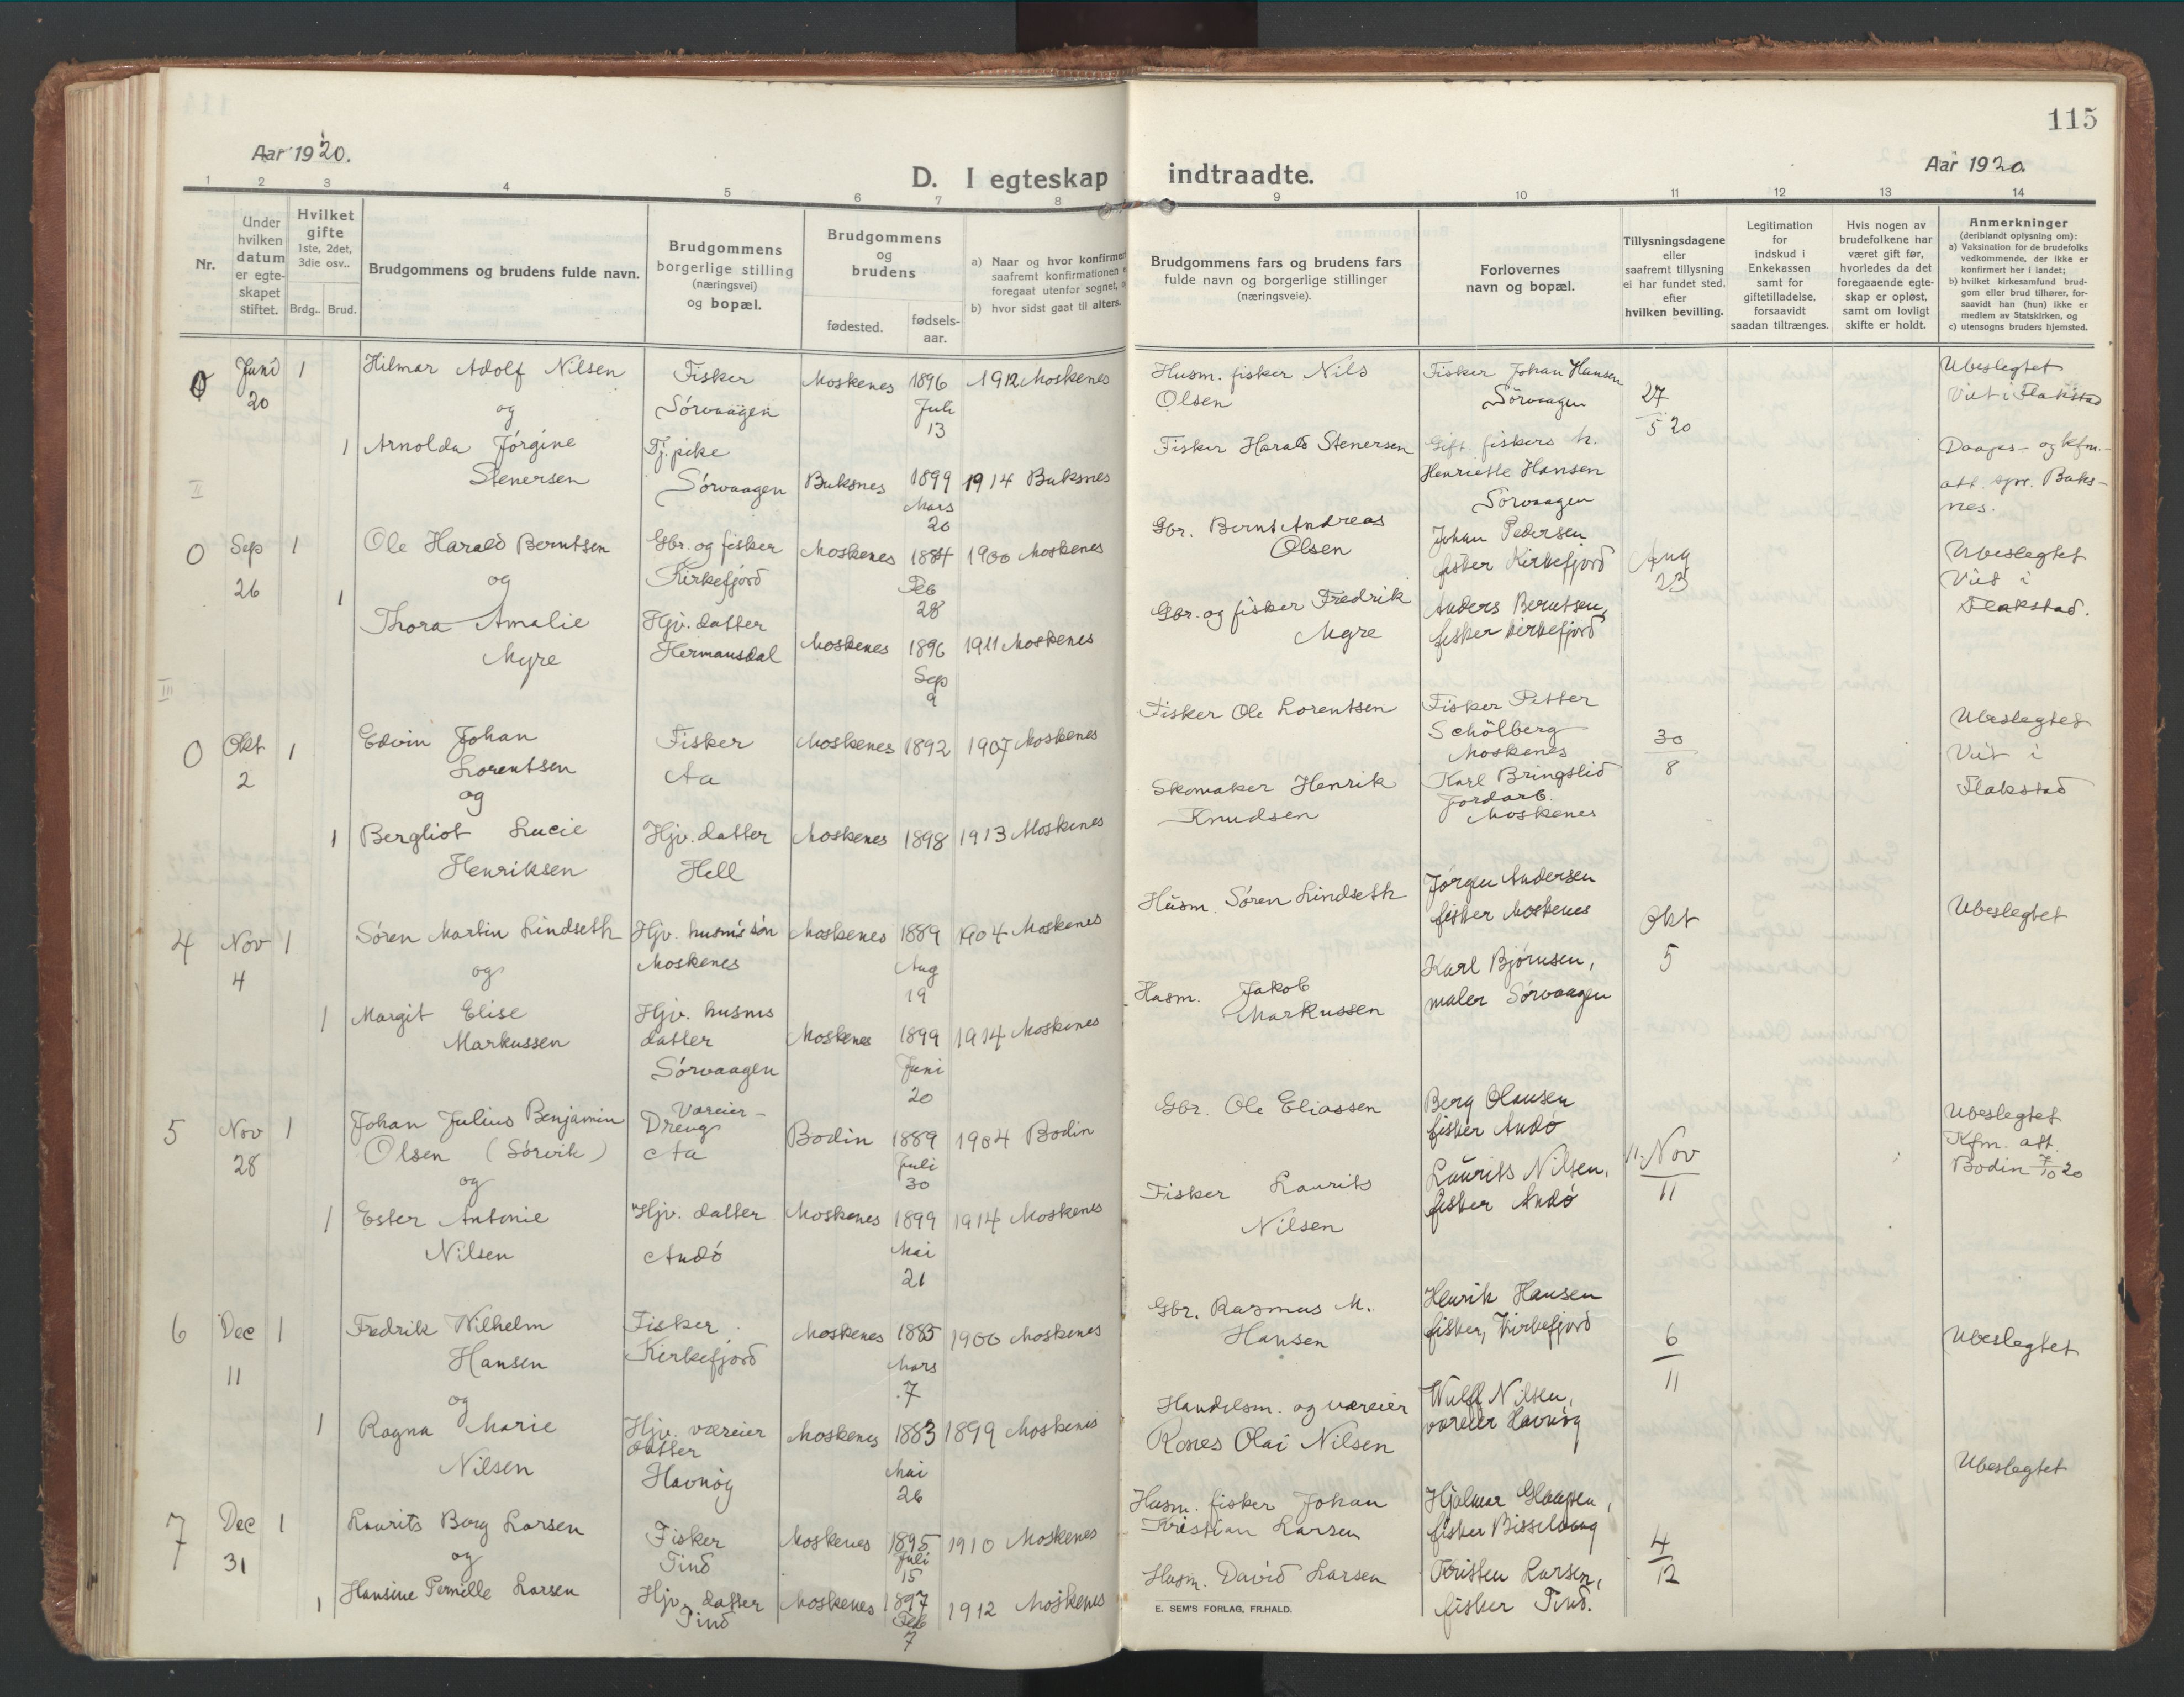 115
Aar 1920.
D. I egteskap indtraadte.
Aar 1920.
1 2 3 4 5 6 7 8 9 10 11 12 13 14
Nr.
Under
hvilken
datum
er egte-
skapet
stiftet.
Hvilket
gifte
1ste, 2det,
3die osv..
Brdg.. Brud.
Brudgommens og brudens fulde navn.
Brudgommens
borgerlige stilling
(næringsvei)
og bopæl.
Brudgommens
og
brudens
fødested.
fødsels-
aar.
a) Naar og hvor konfirmer
saafremt konfirmationen
foregaat utenfor sognet,
b) hvor sidst gaat til alters.
Brudgommens fars og brudens fars
fulde navn og borgerlige stillinger
(næringsveie).
Forlovernes
navn og bopæl.
Tillysningsdagene
eller
saafremt tillysning
ei har fundet sted,
efter
hvilken bevilling.
Legitimation
for
indskud i
Enkekassen
samt for
giftetilladelse,
forsaavidt
saadan tiltrænges.
Hvis nogen av
brudefolkene har
været gift før,
hvorledes da det
foregaaende egte-
skap er opløst,
samt om lovligt
skifte er holdt.
Anmerkninger
(deriblandt oplysning om):
a) Vaksination for de brudefolks
vedkommende, der ikke er
konfirmert her i landet;
b) hvilket kirkesamfund brud-
gom eller brud tilhører, for-
saavidt han (hun) ikke er
medlem av Statskirken, og
c) utensogns bruders hjemsted.
0 Juni 20 1
Hilmar Adolf Nilsen
og
Fisker
Sørvaagen
Moskenes 1896 1912 Moskenes
Juli
13
Husm. fisker Nils
Olsen
Fisker Johan Hansen
Sørvaagen
27
5 20
Ubeslegtet
Viet i Flakstad
1 Arnolda Jørgine
Stenersen
Tj. pike
Sørvaagen
Buksnes 1899 1914 Buksnes
Mars
20
Fisker Harald Stenersen
Gift. fiskers h.
Henriette Hansen
Sørvaagen
Daaps- og kfm.-
att. spr. Buks-
nes.
II
0 Sep 26 1
Ole Harald Berntsen
og
Gbr. og fisker
Kirkefjord
Moskenes 1884 1900 Moskenes
Feb
28
Gbr. Bernt Andreas
Olsen
Johan Pedersen
fisker Kirkefjord
Aug
23
Ubeslegtet
Viet i
Flakstad.
1 Thora Amalie
Myre
Hjv. datter
Hermansdal
Moskenes 1896 1911 Moskenes
Sep
9
Gbr. og fisker Fredrik
Myre
Anders Berntsen,
fisker Kirkefjord
III
0 Okt 2 1
Edvin Johan
Lorentsen
og
Fisker
Aa
Moskenes 1892 1907 Moskenes
Fisker Ole Lorentsen
Fisker Petter
Schölberg
Moskenes
30
8
Ubeslegtet
Viet i
Flakstad
1 Bergliot Lucie
Henriksen
Hjv. datter
Hell
Moskenes 1898 1913 Moskenes
Skomaker Henrik
Knudsen
Karl Bringslid
Jordarb.
Moskenes
4 Nov 4 1
Søren Martin Lindseth
og
Hjv. husm's søn
Moskenes
Moskenes 1889 1904 Moskenes
Aug
19
Husm. Søren Lindseth
Jørgen Andersen
fisker Moskenes
Okt
5
Ubeslegtet
1 Margit Elise
Markussen
Hjv. husms
datter
Sørvaagen
Moskenes 1899 1914 Moskenes
Juni
20
Husm. Jakob
Markussen
Karl Bjørnsen,
maler Sørvaagen
5 Nov 28 1
Johan Julius Benjamin
Olsen (Sørvik)
og
Væreier-
Dreng
Aa
Bodin 1889 1904 Bodin
Juli
30
Gbr. Ole Eliassen
Berg Olausen
fisker Andø
11. Nov
11
Ubeslegtet
Kfm. att.
Bodin 7/10 20
1 Ester Antonie
Nilsen
Hjv. datter
Andø
Moskenes 1899 1914 Moskenes
Mai
21
Fisker Laurits
Nilsen
Laurits Nilsen,
fisker Andø
6 Dec 11 1
Fredrik Wilhelm
Hansen
og
Fisker
Kirkefjord
Moskenes 1885 1900 Moskenes
Mars
7
Gbr. Rasmus M.
Hansen
Henrik Hansen
fisker, Kirkefjord
6
11
Ubeslegtet
1 Ragna Marie
Nilsen
Hjv. væreier
datter
Havnøg
Moskenes 1883 1899 Moskenes
Mai
26
Handelsm. og væreier
Rones Olai Nilsen
Wulff Nilsen,
væreier Havnøg
7 Dec 31 1
Laurits Borg Larsen
og
Fisker
Tind
Moskenes 1895 1910 Moskenes
Juli
15
Husm. fisker Johan
Kristian Larsen
Hjalmar
fisker
4
12
Ubeslegtet
1 Hansine Pernille Larsen
Hjv. datter
Tind
Moskenes 1897 1912 Moskenes
Feb
7
Husm. David Larsen
Kristen Larsen,
fisker Tind.
E. SEM'S FORLAG, FR.HALD.